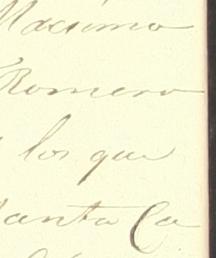 Maximo
Romero
los que
Santa Ca